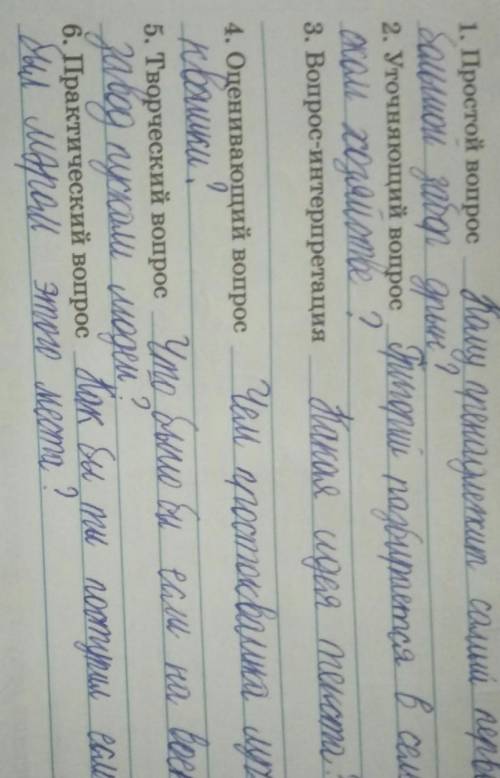 1. Простой вопрос Кому пренадлежит самый
большой забор
2. Уточняющий вопрос Григорий разбирается в
ском хозяйстве?
3. Вопрос-интерпретация Какая идея текста
4. Оценивающий вопрос Чем простоквашка
квашки?
5. Творческий вопрос Что было бы если на
завод пускали людей?
6. Практический вопрос Как бы ты поступил
был мэром этого места?